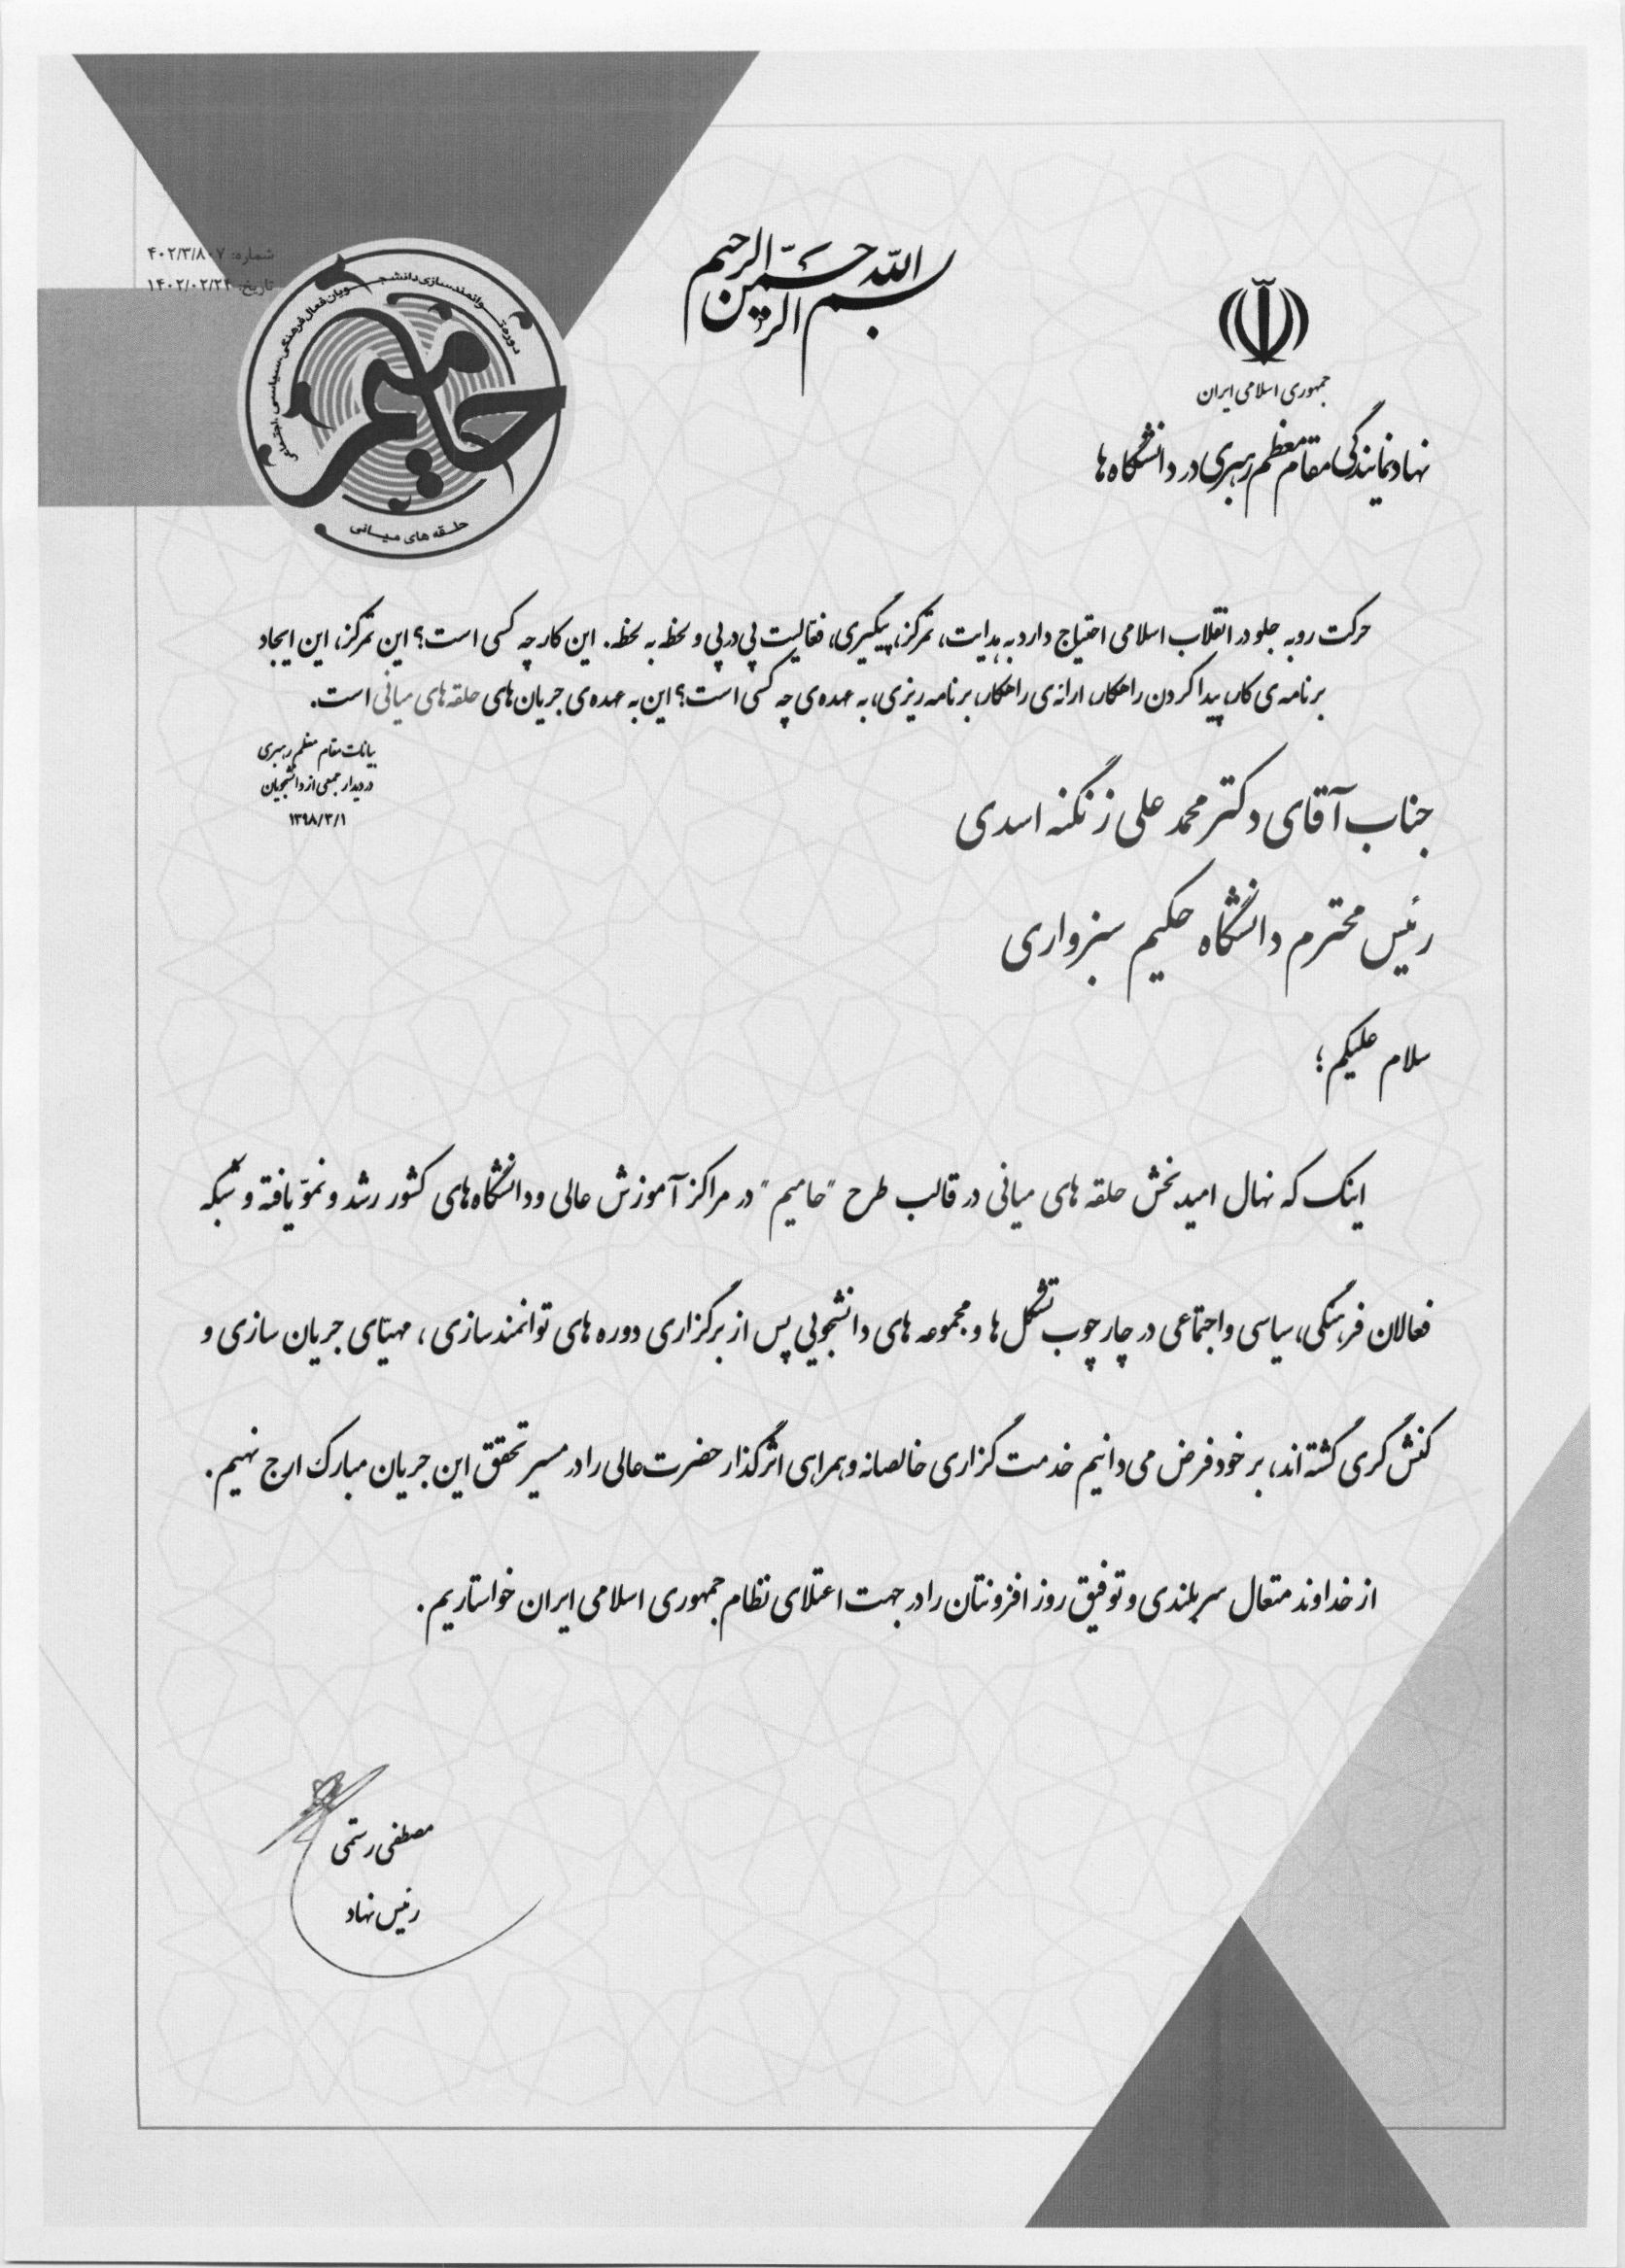 بسم الله الرحمن الرحیم
شماره: ۴۰۲/۳/۸۰۷
تاریخ: ۱۴۰۲/۰۲/۲۴
جمهوری اسلامی ایران
نهاد نمایندگی مقام معظم رهبری در دانشگاه‌ها
دوره توانمندسازی دانشجویان فعال فرهنگی، سیاسی، اجتماعی
حامیم
حلقه های میانی
حرکت رو به جلو در انقلاب اسلامی احتیاج دارد به هدایت، تمرکز، پیگیری، فعالیت پی در پی و لحظه به لحظه. این کار چه کسی است؟ این تمرکز، این ایجاد
برنامه‌ی کار، پیدا کردن راهکار، ارائه‌ی راهکار، برنامه‌ریزی، به عهده‌ی چه کسی است؟ این به عهده‌ی جریان‌های حلقه‌های میانی است.
بیانات مقام معظم رهبری
در دیدار جمعی از دانشجویان
۱۳۹۸/۳/۱
جناب آقای دکتر محمد علی زنگنه اسدی
رئیس محترم دانشگاه حکیم سبزواری
سلام علیکم؛
اینک که نهال امیدبخش حلقه های میانی در قالب طرح "حامیم" در مراکز آموزش عالی و دانشگاه‌های کشور رشد و نموّ یافته و شبکه
فعالان فرهنگی، سیاسی و اجتماعی در چارچوب تشکل‌ها و مجموعه های دانشجویی پس از برگزاری دوره های توانمندسازی، مهیّای جریان سازی و
کنش گری گشته‌اند، بر خود فرض می‌دانیم خدمت گزاری خالصانه و همراهی اثرگذار حضرت عالی را در مسیر تحقق این جریان مبارک ارج نهیم.
از خداوند متعال سربلندی و توفیق روز افزونتان را در جهت اعتلای نظام جمهوری اسلامی ایران خواستاریم.
مصطفی رستمی
رئیس نهاد